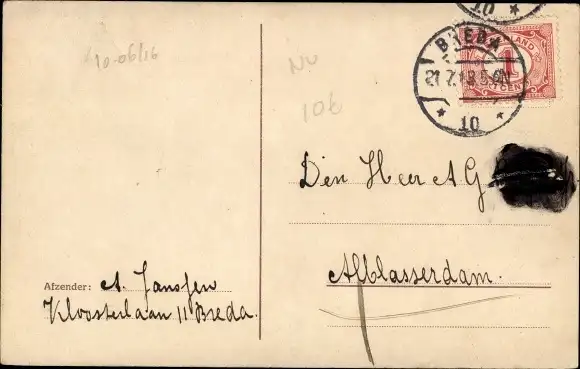 10-06/16
NV
106
BREDA
21.7.13 5.6N
10
10
1
Den Heer A G
Alblasserdam.
Afzender: A. Janssen
Kloosterlaan 11 Breda.